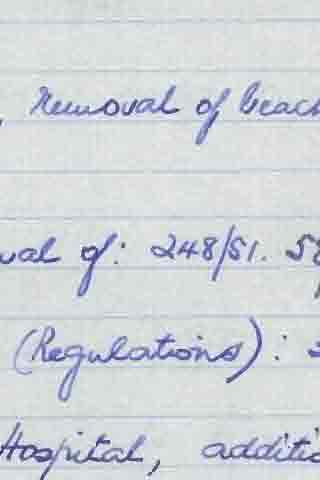 , Removal of beach
val of: 248/51. 58
(Regulations):
Hospital, additio